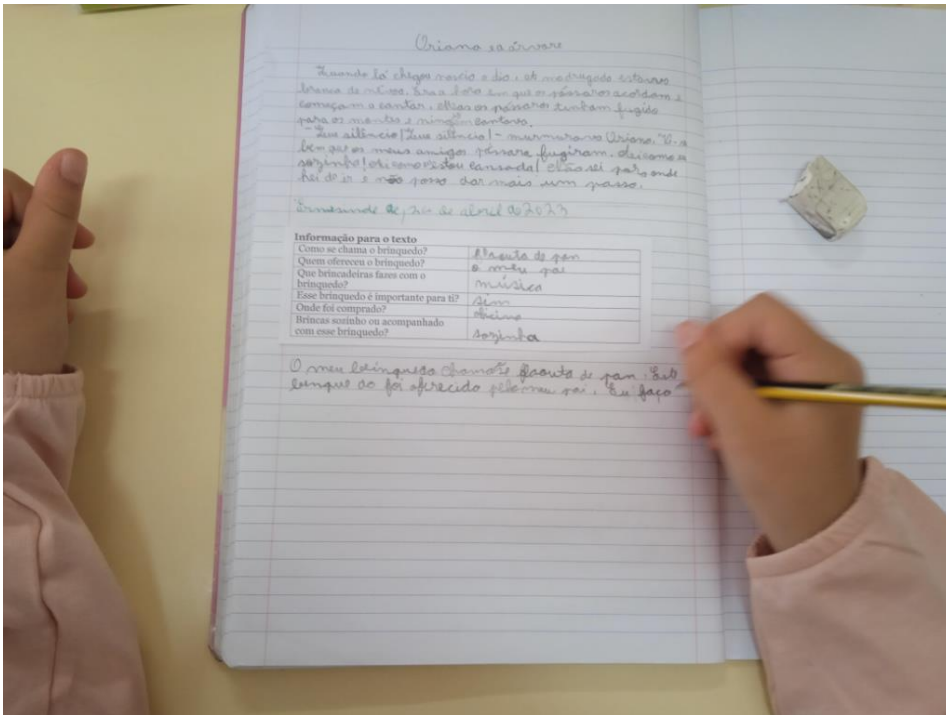 Oriana e a árvore
Quando lá chegou nascia o dia. A madrugada estava
branca de névoa. Era a hora em que os pássaros acordam e
começam a cantar. Mas os pássaros tinham fugido
para os montes e ninguém cantava.
- Que silêncio! Que silêncio! - murmurava Oriana. É
bem que os meus amigos pássaros fugiram. Ai como
sozinha! Ai como estou cansada! Não sei para onde
hei de ir e não posso dar mais um passo.
Ermesinde, de abril de 2023
Informação para o texto
Como se chama o brinquedo? flauta de pan
Quem ofereceu o brinquedo? o meu pai
Que brincadeiras fazes com o
brinquedo? música
Esse brinquedo é importante para ti? sim
Onde foi comprado?
Brincas sozinho ou acompanhado
com esse brinquedo? sozinha
O meu brinquedo chamase flaouta de pan. Este
brinque do foi oferecido pelo meu pai. Eu faço